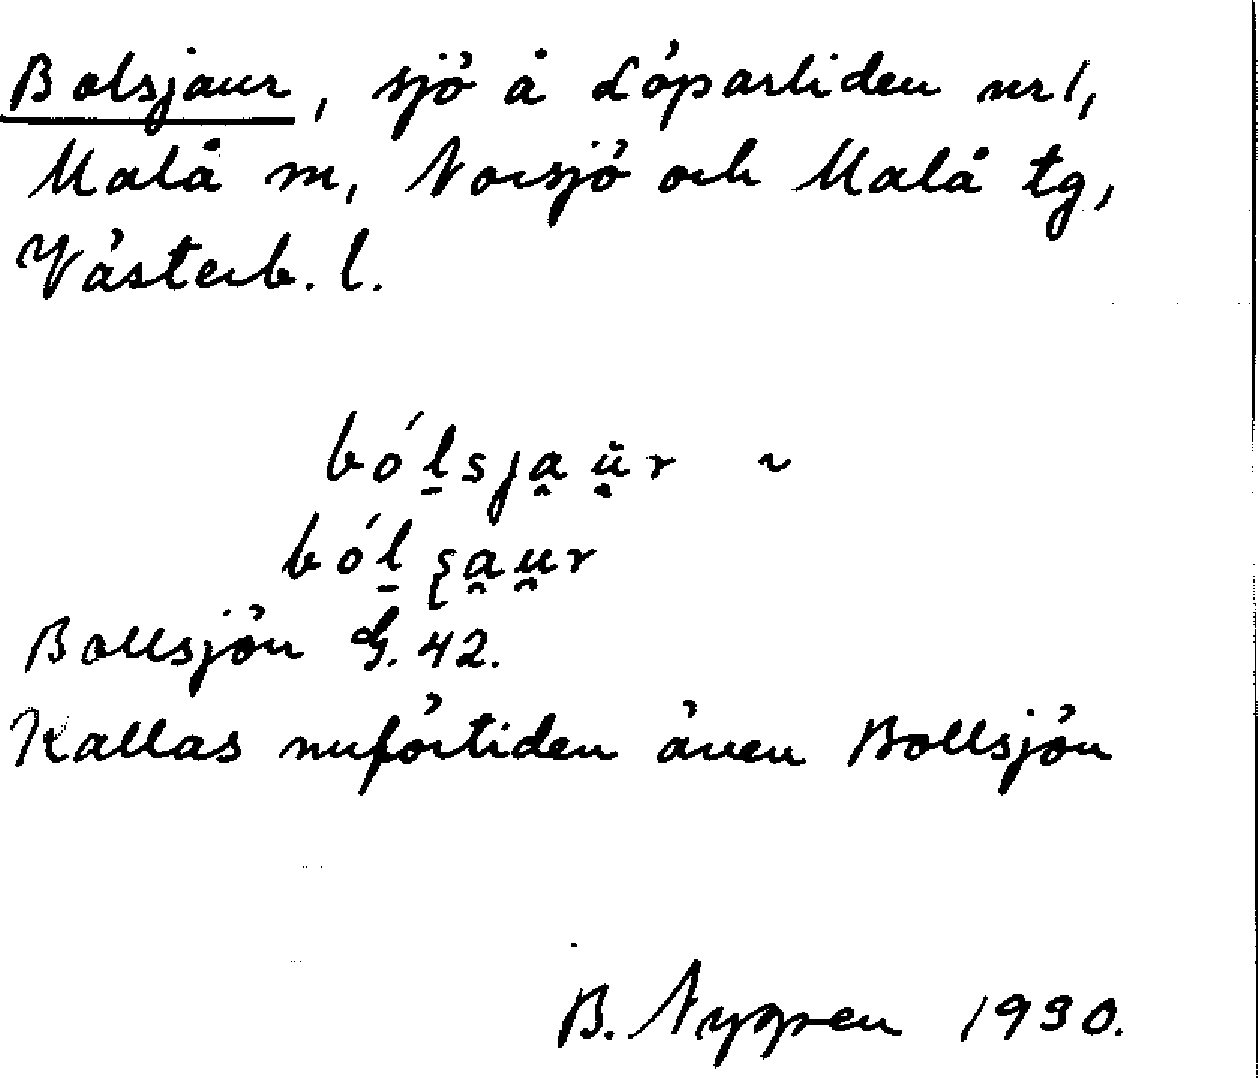 Bolsjaur, sjö å Löparliden nr 1,
Malå m, Norsjö och Malå tg,
Västerb. l.
bó́l̠sja̯ṳ̈r ~
ból̠ʂa̯u̯r
Bollsjön G. 42.
Kallas nuförtiden även Bollsjön
B. Nygren 1930.